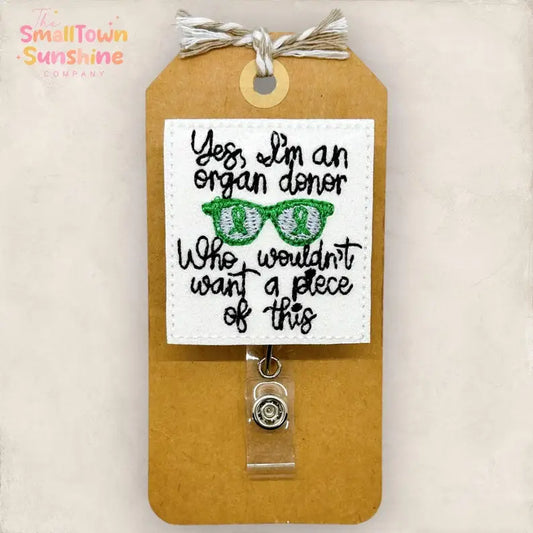 The
SmallTown
Sunshine
COMPANY
Yes, I'm an
organ donor
Who wouldn't
want a piece
of this